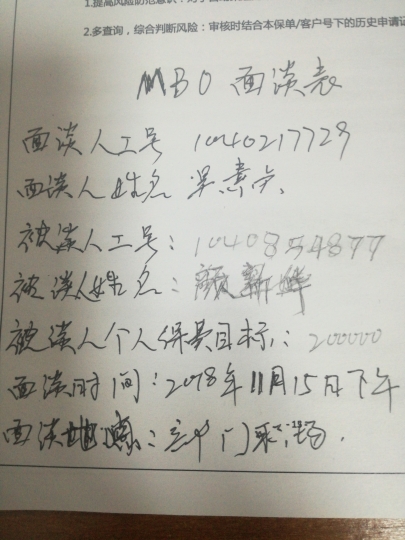 1.提高风险防范意识：
2.多查询，综合判断风险：审核时结合本保单/客户号下的历史申请记
MBO 面谈表
面谈人工号 1040217729
面谈人姓名
被谈人工号：1040854877
被谈人姓名：颜新鲜
被谈人个人保费目标：200000
面谈时间：2018年11月15日下午
面谈地点：部门职场.